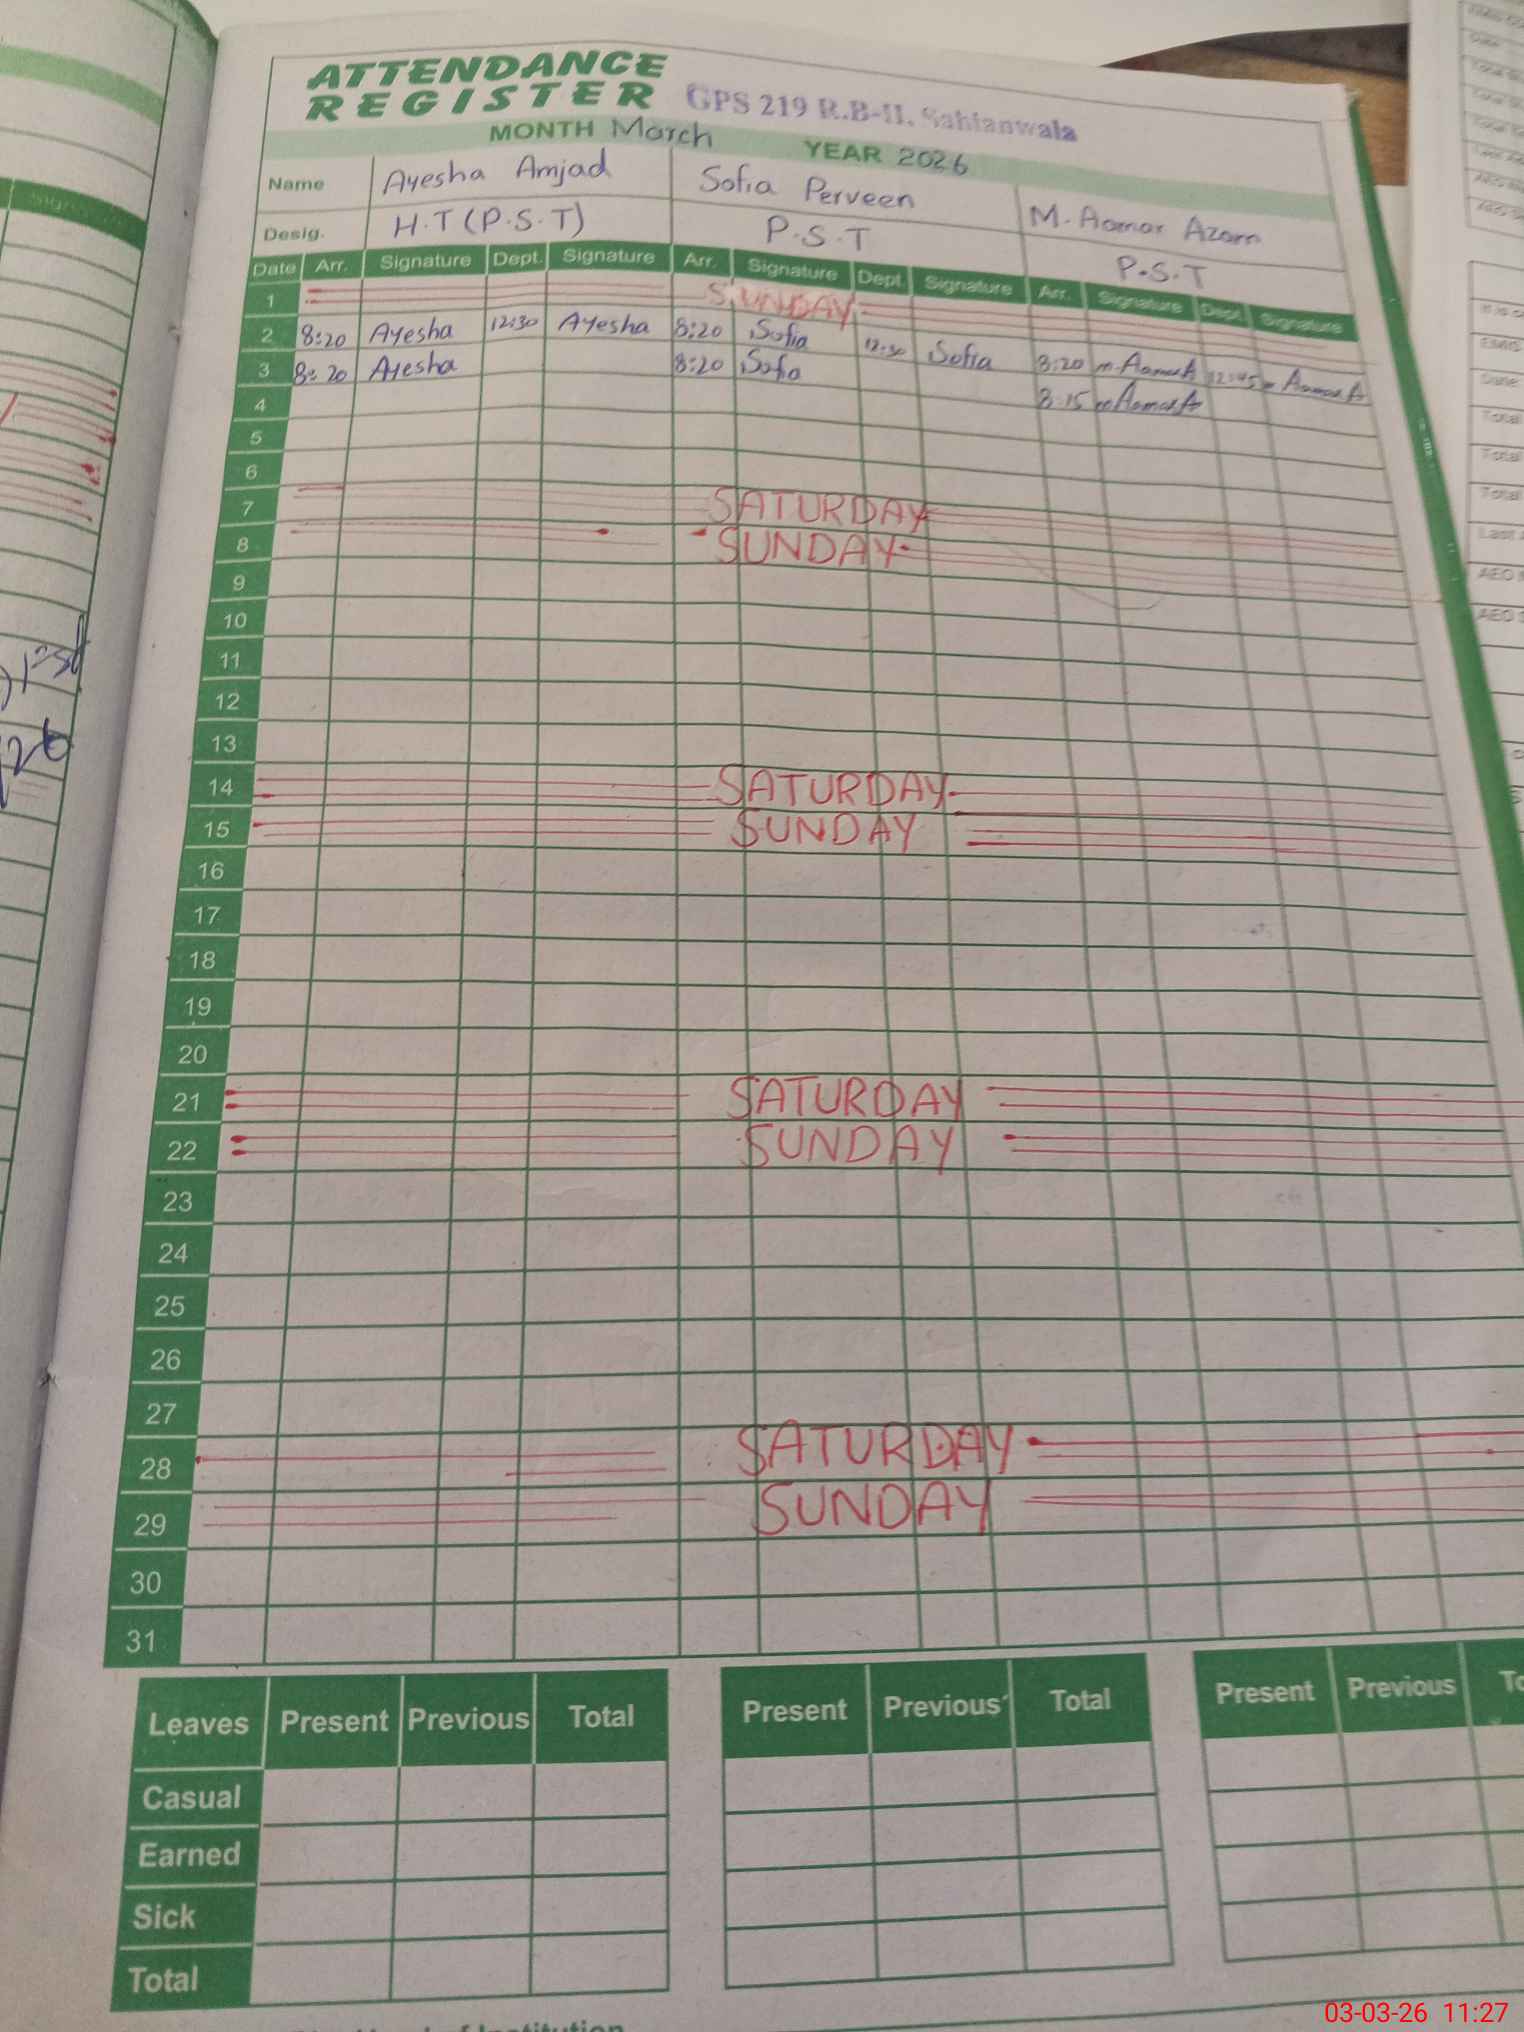 ATTENDANCE
REGISTER GPS 219 R.B-II. Sahianwala
MONTH March YEAR 2026
Name Ayesha Amjad Sofia Perveen M. Aamar Azam
Desig. H.T (P.S.T) P.S.T P.S.T
Date Arr. Signature Dept. Signature Arr. Signature Dept. Signature Arr. Signature Dept. Signature
1 SUNDAY
2 8:20 Ayesha 12:30 Ayesha 8:20 Sofia 12:30 Sofia 8:20 m.AamarA 12:45 m AamarA
3 8:20 Ayesha 8:20 Sofia 8:15 mAamarA
4
5
6
7 SATURDAY
8 SUNDAY
9
10
11
12
13
14 SATURDAY
15 SUNDAY
16
17
18
19
20
21 SATURDAY
22 SUNDAY
23
24
25
26
27
28 SATURDAY
29 SUNDAY
30
31
Leaves Present Previous Total Present Previous Total Present Previous
Casual
Earned
Sick
Total
03-03-26 11:27